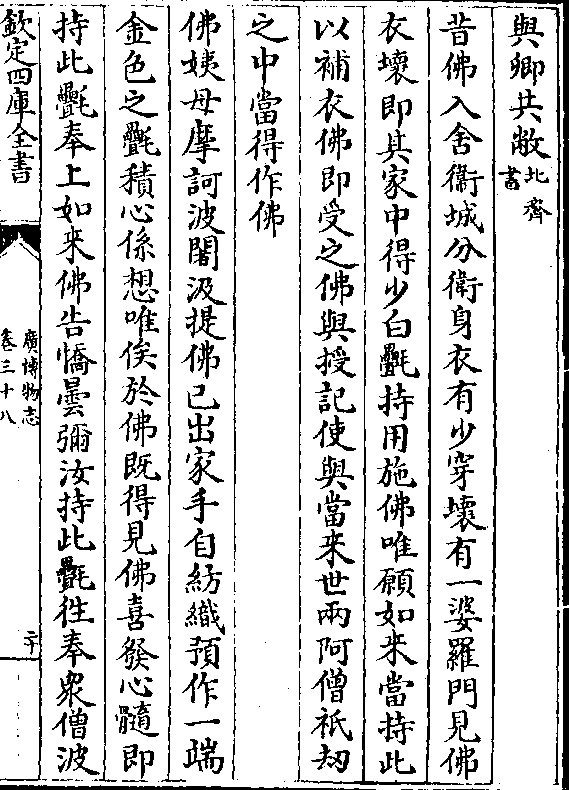 與卿共敝北齊書
昔佛入舍衞城分衛身衣有少穿壞有一婆羅門見佛
衣壞即其家中得少白㲲持用施佛唯願如来當持此
以補衣佛即受之佛與授記使與當来世兩阿僧祇刼
之中當得作佛
佛姨母摩訶波闍汲提佛已出家手自紡織預作一端
金色之㲲積心係想唯俟於佛既得見佛喜發心髓即
持此㲲奉上如来佛告憍曇彌汝持此㲲徃奉衆僧波
欽定四庫全書
廣博物志
卷三十八
二十